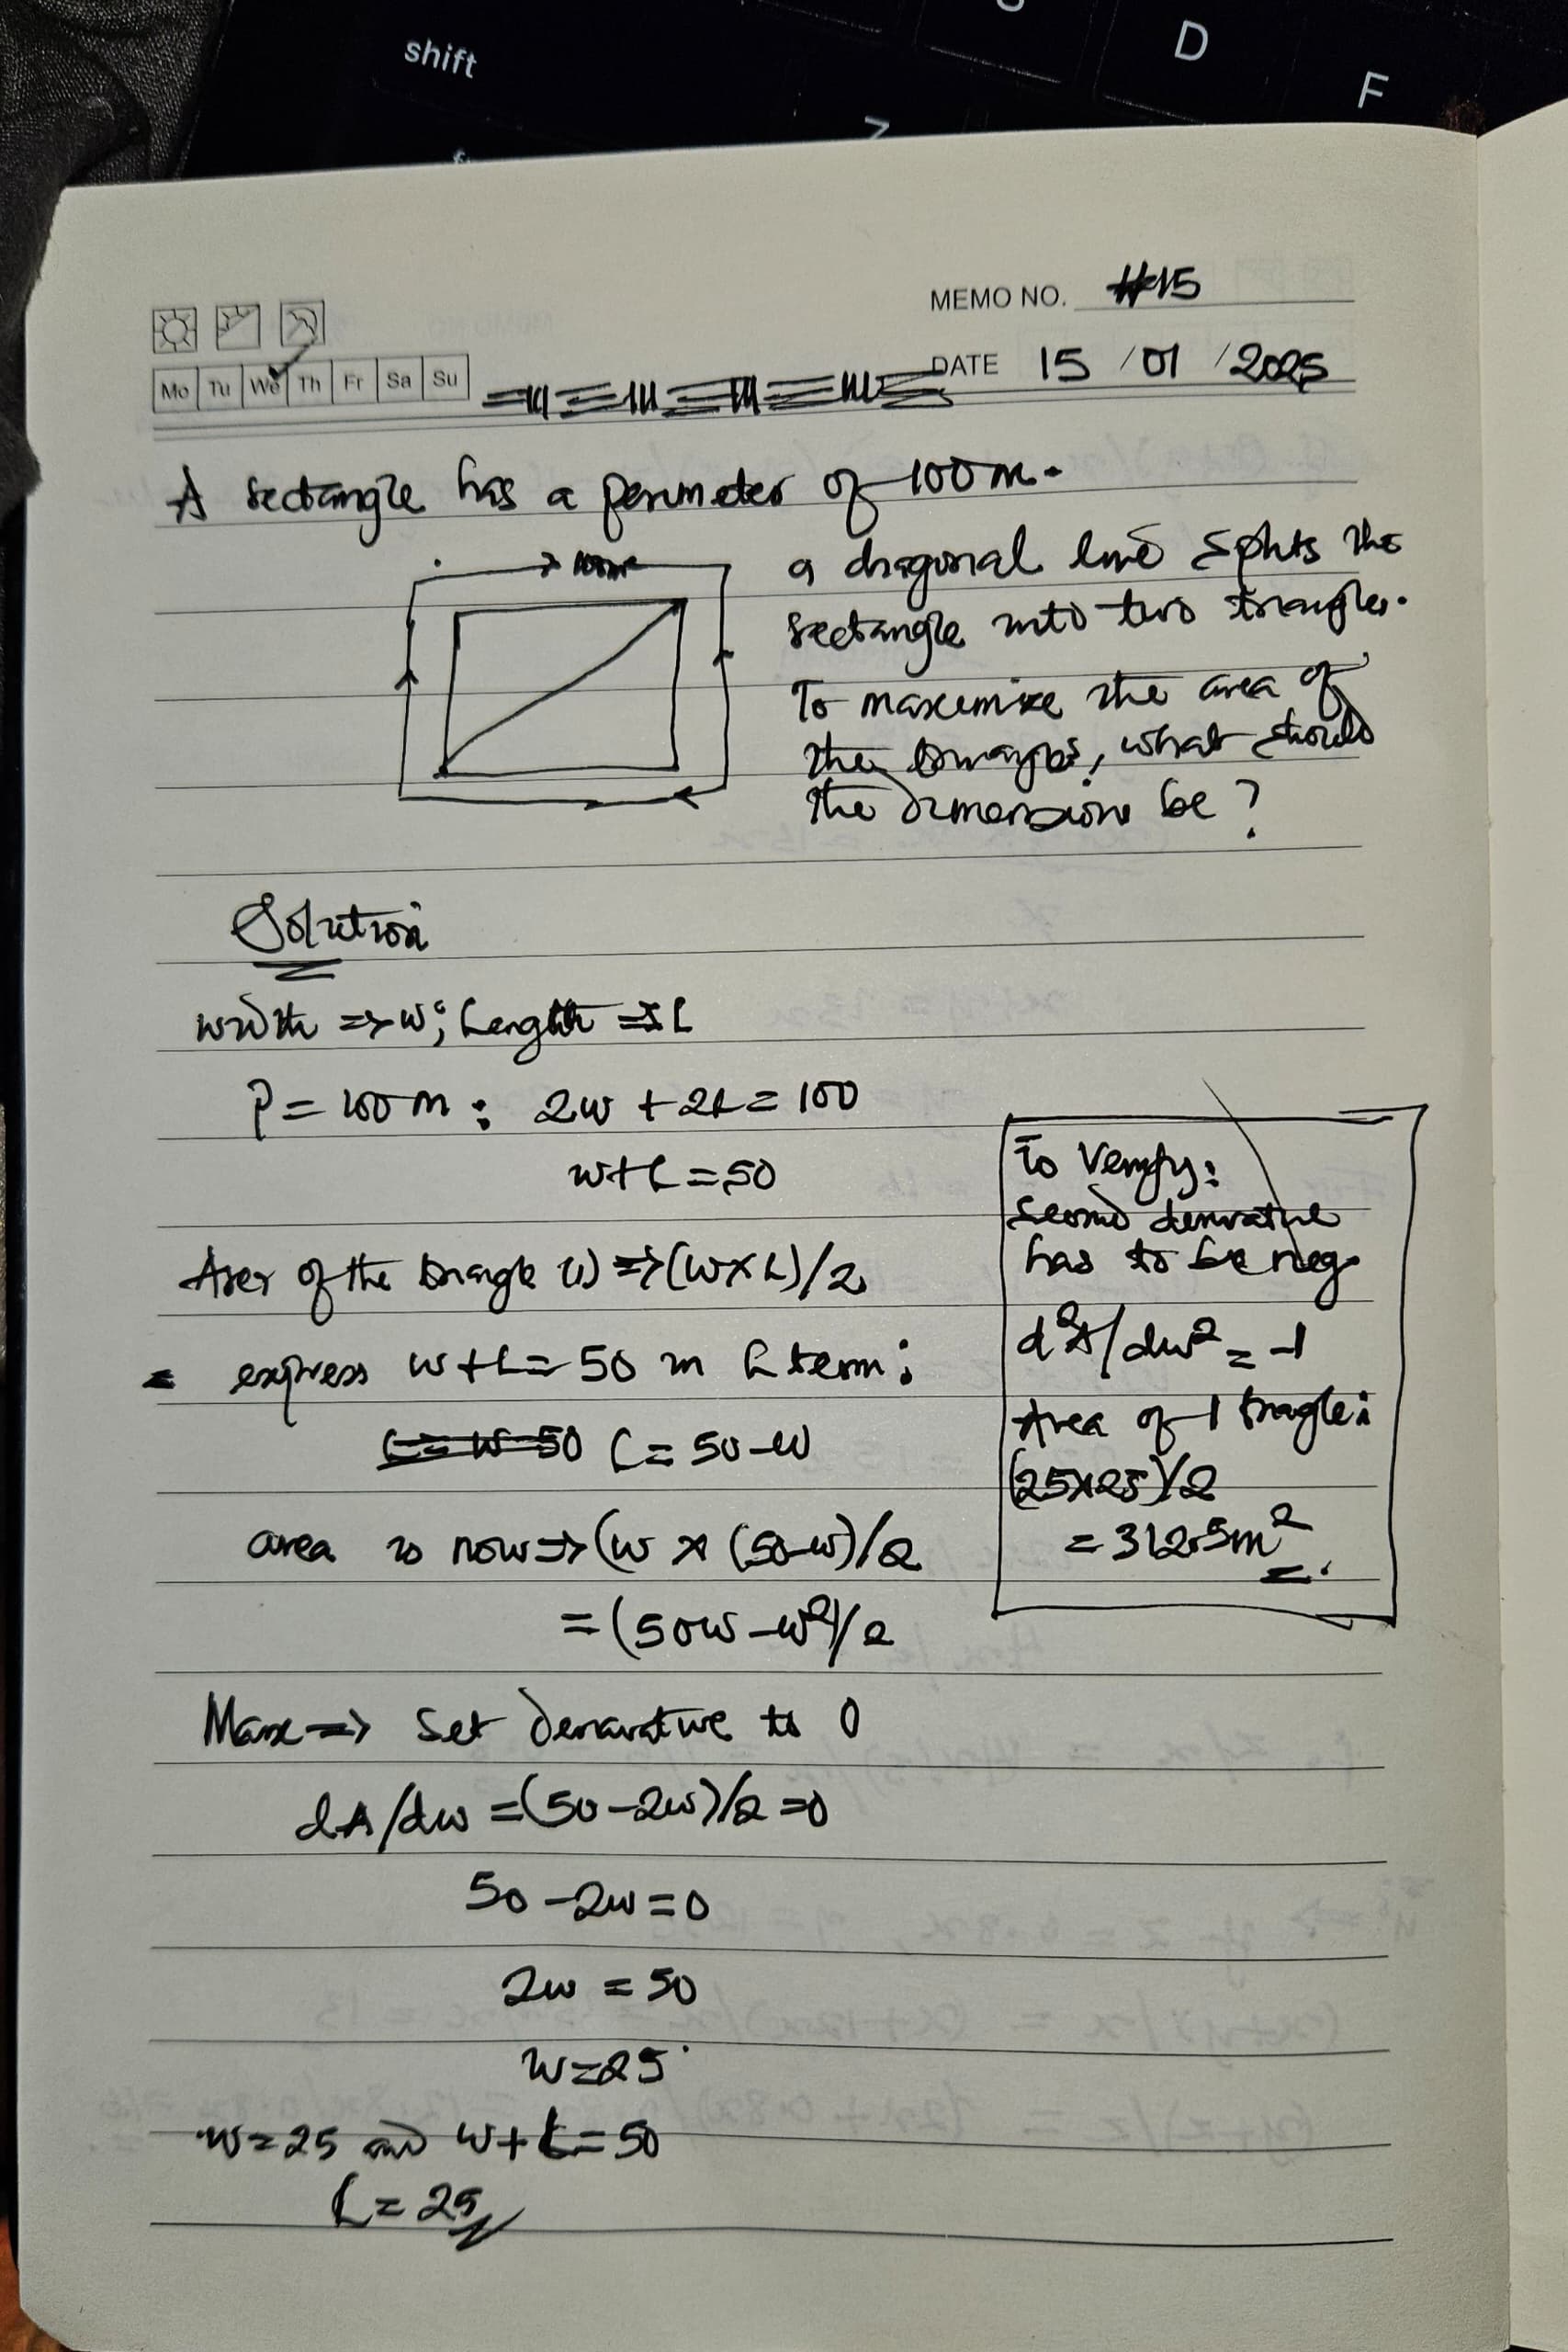 shift
D
F
Z
MEMO NO. #15
Mo Tu We Th Fr Sa Su
DATE 15 / 01 / 2025
A rectangle has a perimeter of 100m.
100m
a diagonal line splits the
rectangle into two triangles.
To maximize the area of
the triangles, what should
the dimensions be?
Solution
width => w; Length => L
P = 100m : 2w + 2L = 100
w + L = 50
Area of the triangle (1) => (w x L)/2
= express w + L = 50 in L term:
L = w - 50 L = 50 - w
area is now => (w x (50-w)/2
= (50w - w²)/2
Max => Set derivative to 0
dA/dw = (50 - 2w)/2 = 0
50 - 2w = 0
2w = 50
w = 25
w = 25 and w + L = 50
L = 25
To Verify:
Second derivative
has to be neg.
d²A/dw² = -1
Area of 1 triangle:
(25x25)/2
= 312.5m².